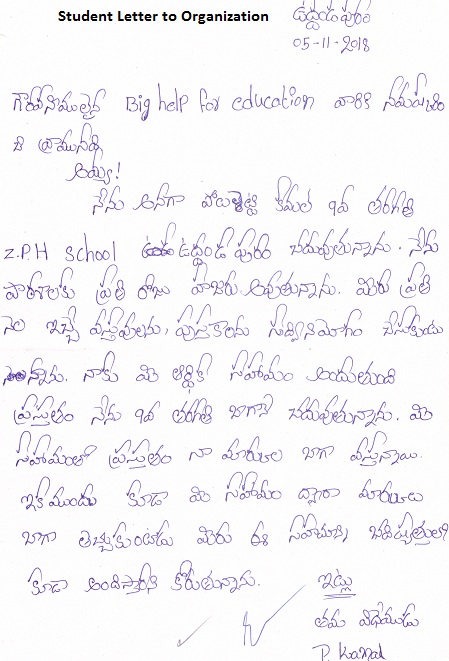 Student Letter to Organization
ఉద్దండపురం
05-11-2018
గౌరవనీయులైన Big help for education వారికి నమస్కారం
వ్రాయునది
అయ్యా!
నేను అనగా కమల 9వ తరగతి
Z.P.H School ఉద్దండ పురం చదువుతున్నాను. నేను
పాఠశాలకు ప్రతి రోజు హాజరు అవుతున్నాను. మీరు ప్రతి
నెల ఇచ్చే వస్తువులను, పుస్తకాలను సద్వినియోగం చేసుకుంటు
న్నాను. నాకు మీ ఆర్థిక సహాయం అందుతుంది
ప్రస్తుతం నేను 9వ తరగతి బాగానే చదువుతున్నాను. మీ
సహాయంతో ప్రస్తుతం నా మార్కులు బాగా వస్తున్నాయి.
ఇక ముందు కూడా మీ సహాయం ద్వారా మార్కులు
బాగా తెచ్చుకుంటాను మీరు ఈ సహాయాన్ని భవిష్యత్తులో
కూడా అందిస్తారని కోరుతున్నాను.
ఇట్లు
తమ విధేయుడు
P. Kamal